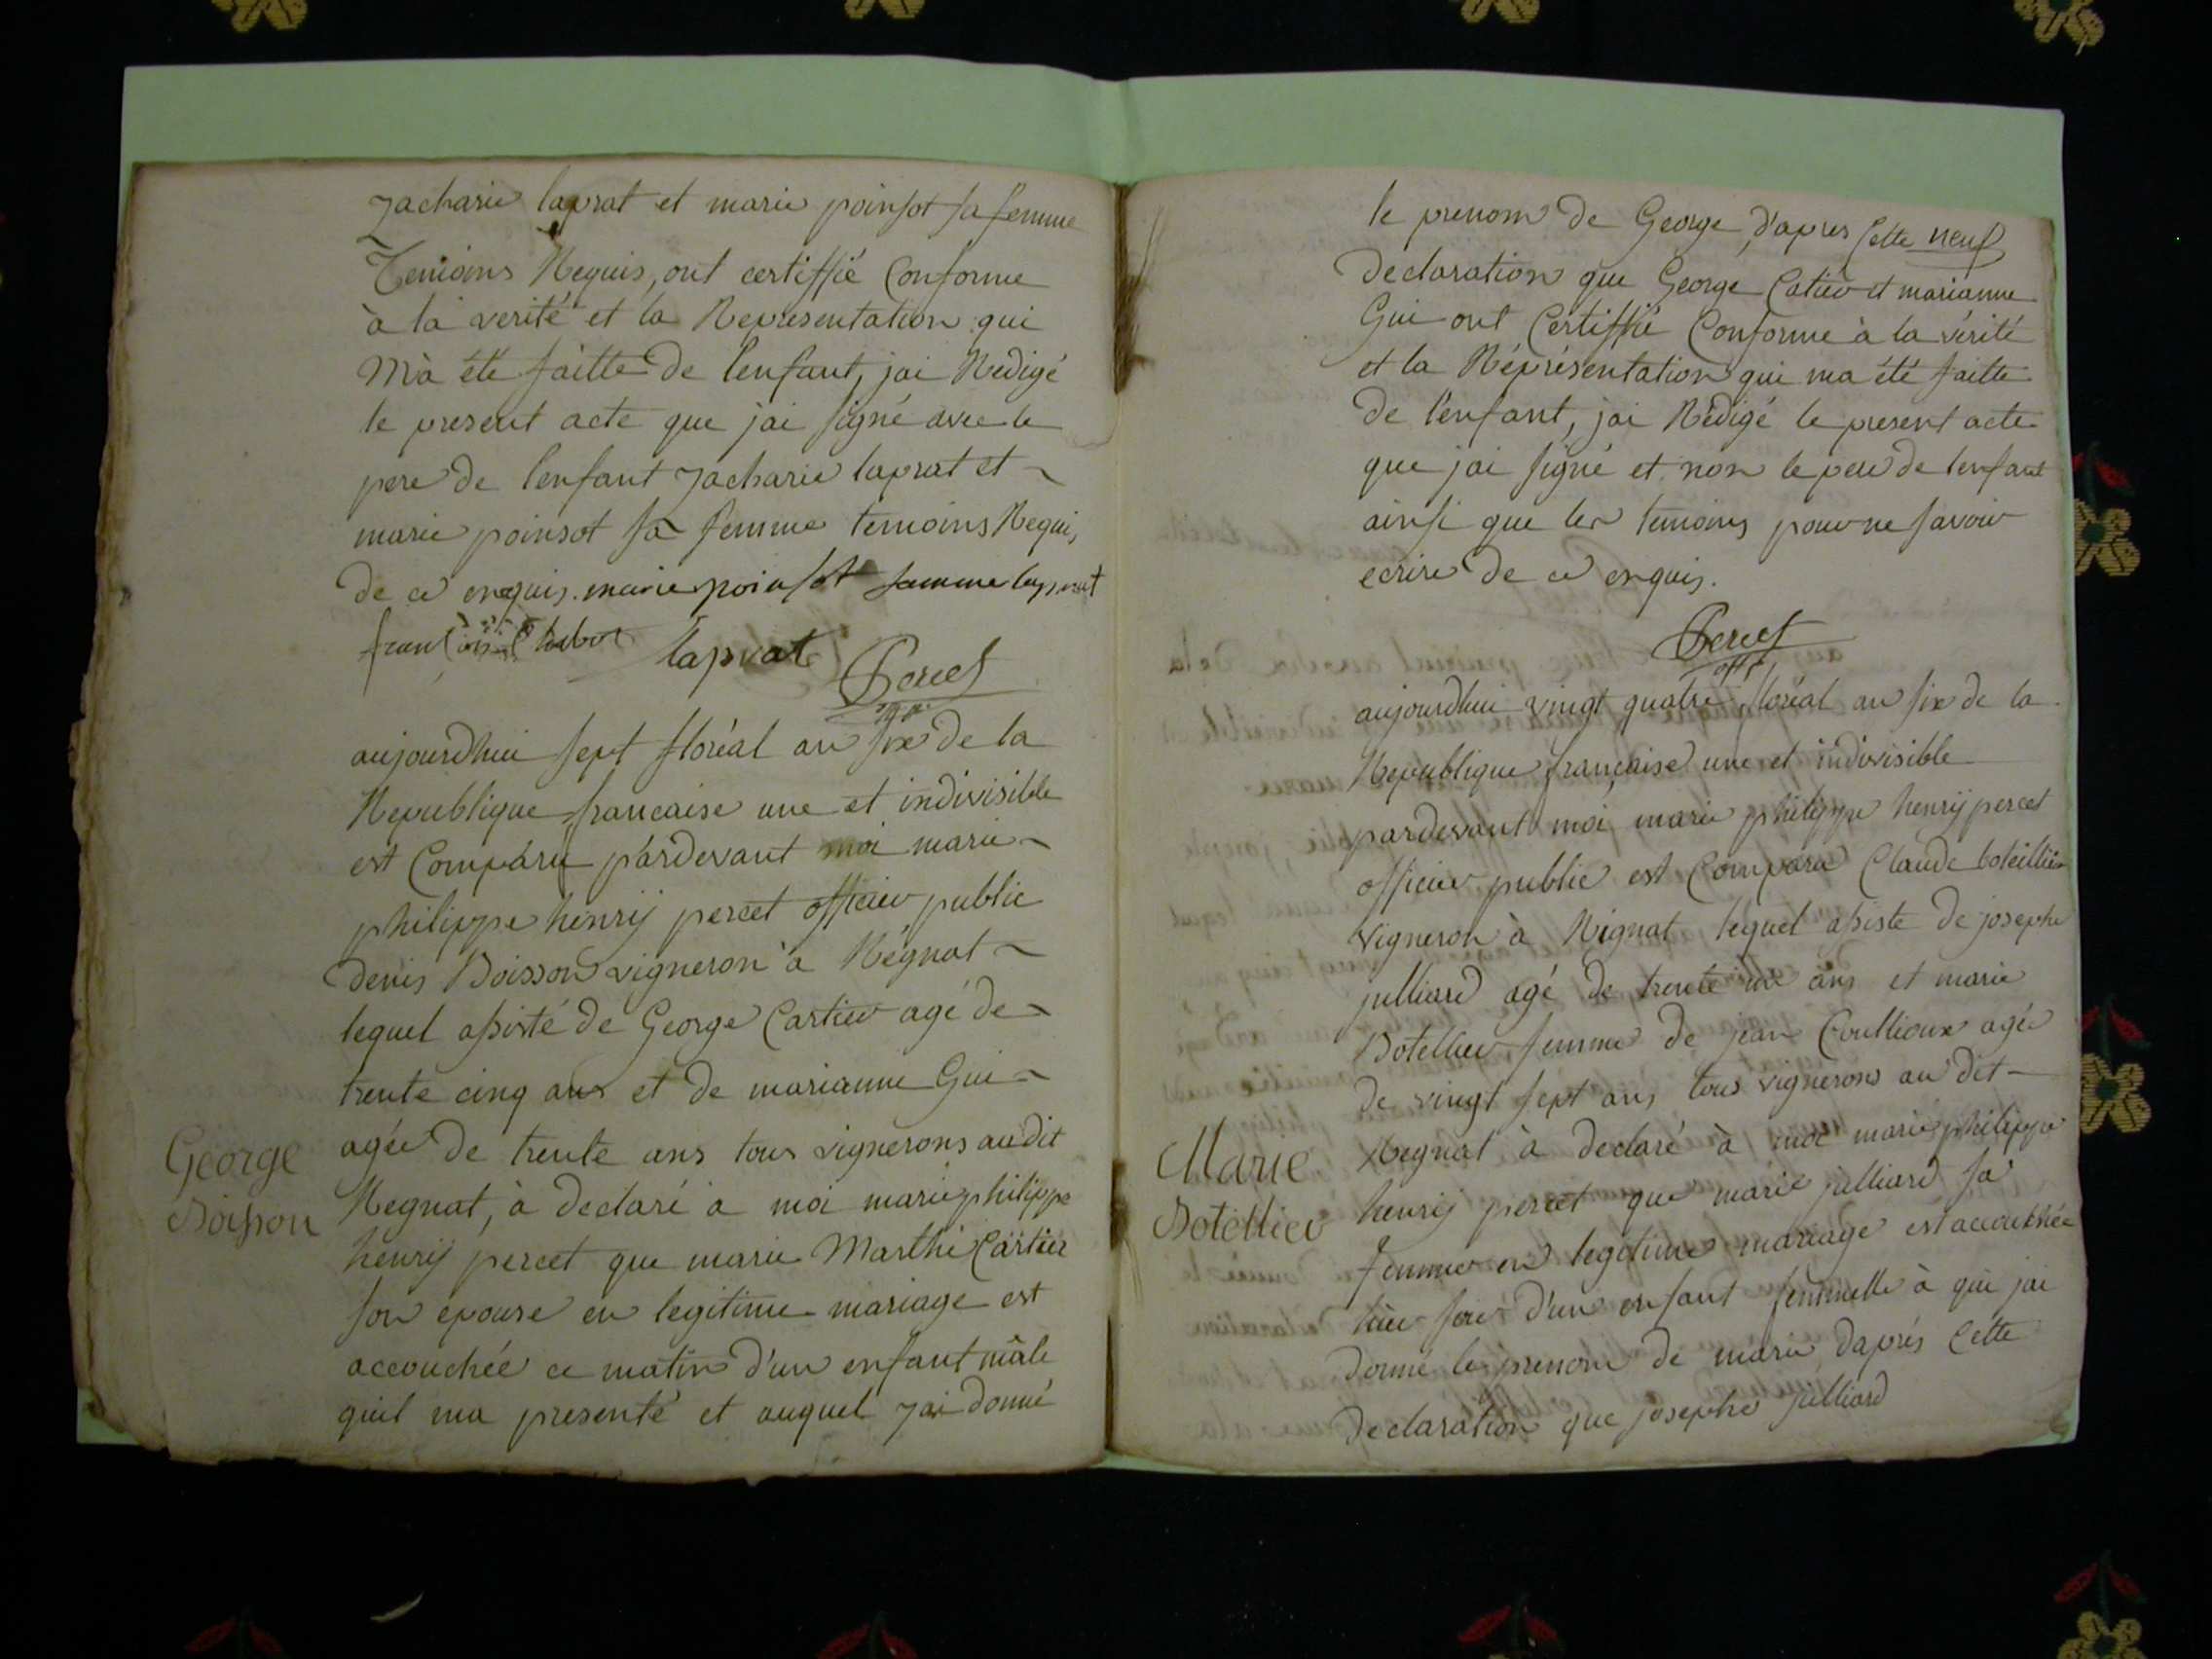 zacharie laprat et marie poinsot sa femme
Temoins Requis, ont certiffié Conforme
à la verité et la Representation qui
M'à été faitte de l'enfant, jai Redigé
le present acte que jai signé avec le
pere de l'enfant zacharie laprat et
marie poinsot sa femme temoins Requis
de ce enquis. marie poinsot famme laprat
laprat
Percet
aujourdhui sept floréal an six de la
Republique francaise une et indivisible
est Comparu pardevant moi marie
philippe henrij percet officier public
denis Boisson vigneron à Régnat
lequel assisté de George Cartier agé de
trente cinq ans et de marianne Gui
agée de trente ans tous vignerons audit
Regnat, à declaré à moi marie philippe
henrij percet que marie Marthe Cartier
son epouse en legitime mariage est
accouchée ce matin d'un enfant mâle
quil ma presenté et auquel jai donné
George
Boisson
le prenom de George, d'apres Cette neuf
declaration que George Catier et marianne
Gui ont Certiffié Conforme à la vérité
et la Réprésentation qui ma été faitte
de l'enfant, jai Rédigé le present acte
que jai signé et non le pere de lenfant
ainsi que les temoins pour ne savoir
ecrire de ce enquis.
Percet
offr
aujourdhui vingt quatre floréal an six de la
Republique française une et indivisible
pardevant moi marie philippe henrij percet
officier public est Comparu Claude boteillier
vigneron à Rignat lequel assisté de josephe
julliard agé de trente ans et marie
Botellier femme de jean Coullioux agée
de vingt sept ans tous vignerons au dit
Regnat à declaré à moi marie philippe
henrij percet que marie julliard sa
femme en legitime mariage est accouchée
hier soir d'un enfant femmelle à qui jai
donné le prenom de marie daprés Cette
declaration que josephe julliard
Marie
Botellier